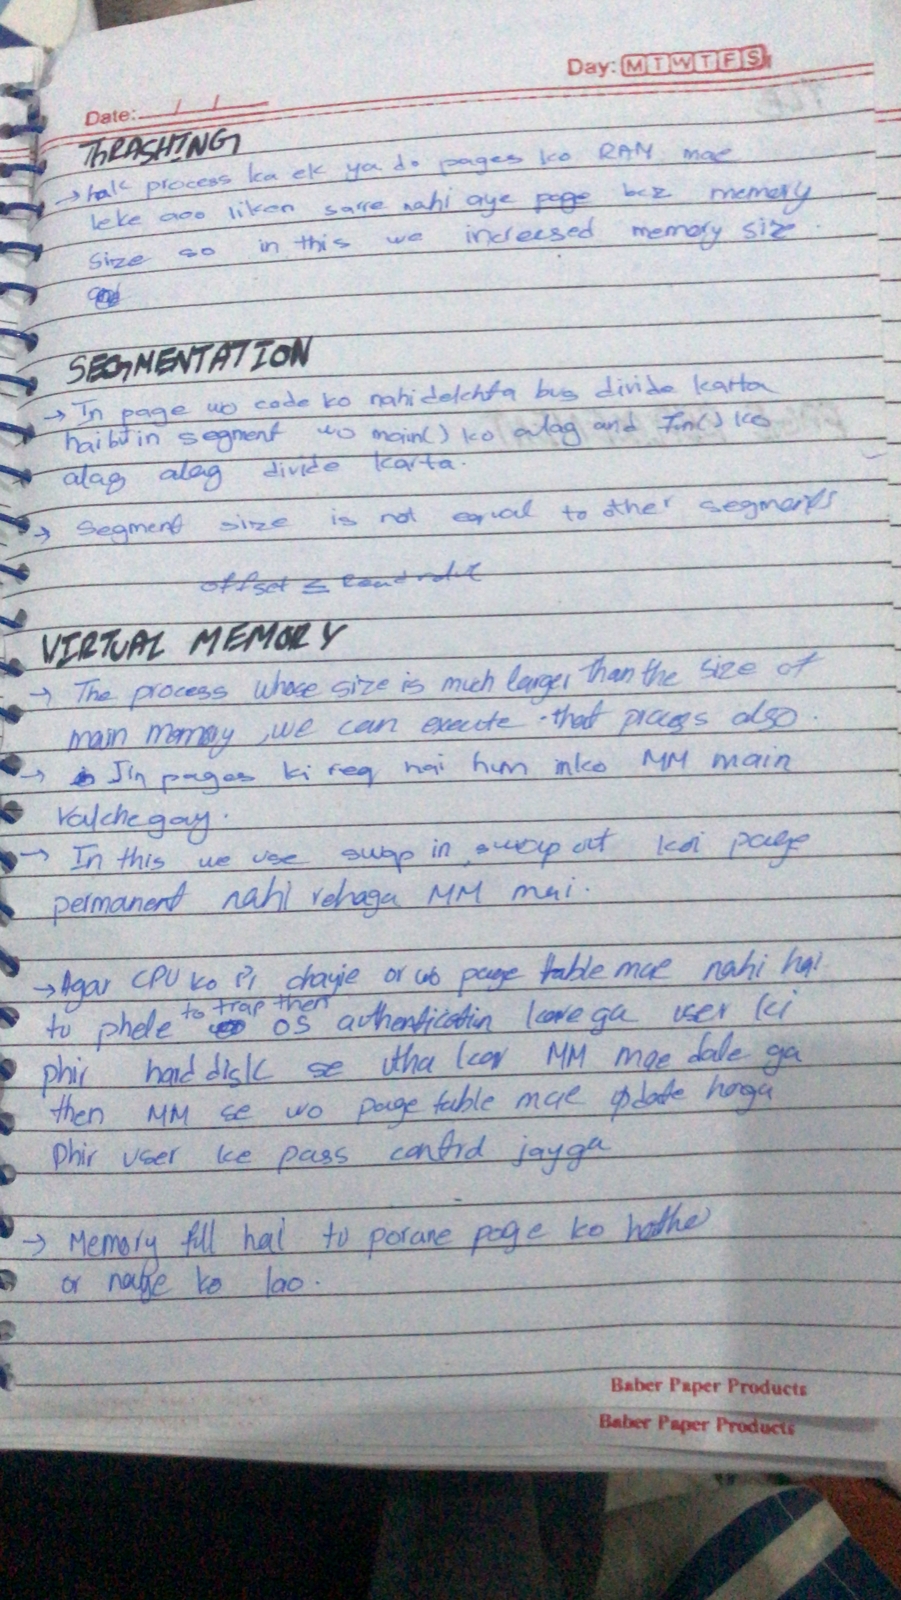 Day: M T W T F S
Date: / /
THRASHING
→ hale process ka ek ya do pages ko RAM mae
leke aoo liken sare nahi aye page bcz memory
size so in this we increesed memory size.
SEGMENTATION
→ In page wo code ko nahi delchta bus divide karta
hai but in segment wo main() ko alag and Fin() ko
alag alag divide karta.
→ Segment size is not equal to other segments
offset ≤
VIRTUAL MEMORY
→ The process whose size is much larger than the size of
main memory, we can execute that process also.
→ Jin pages ki req hai hum inko MM main
rakhe gay.
→ In this we use swap in, swap out koi page
permanent nahi rehaga MM mai.
→ Agar CPU ko P1 chayie or wo page table mae nahi hai
to trap then
to phele OS authentication kare ga user ki
phir hard disk se utha kar MM mae dale ga
then MM se wo page table mae update hoga
Phir user ke pass control jayga
→ Memory full hai to porane page ko hatha
or naye ko lao.
Baber Paper Products
Baber Paper Products